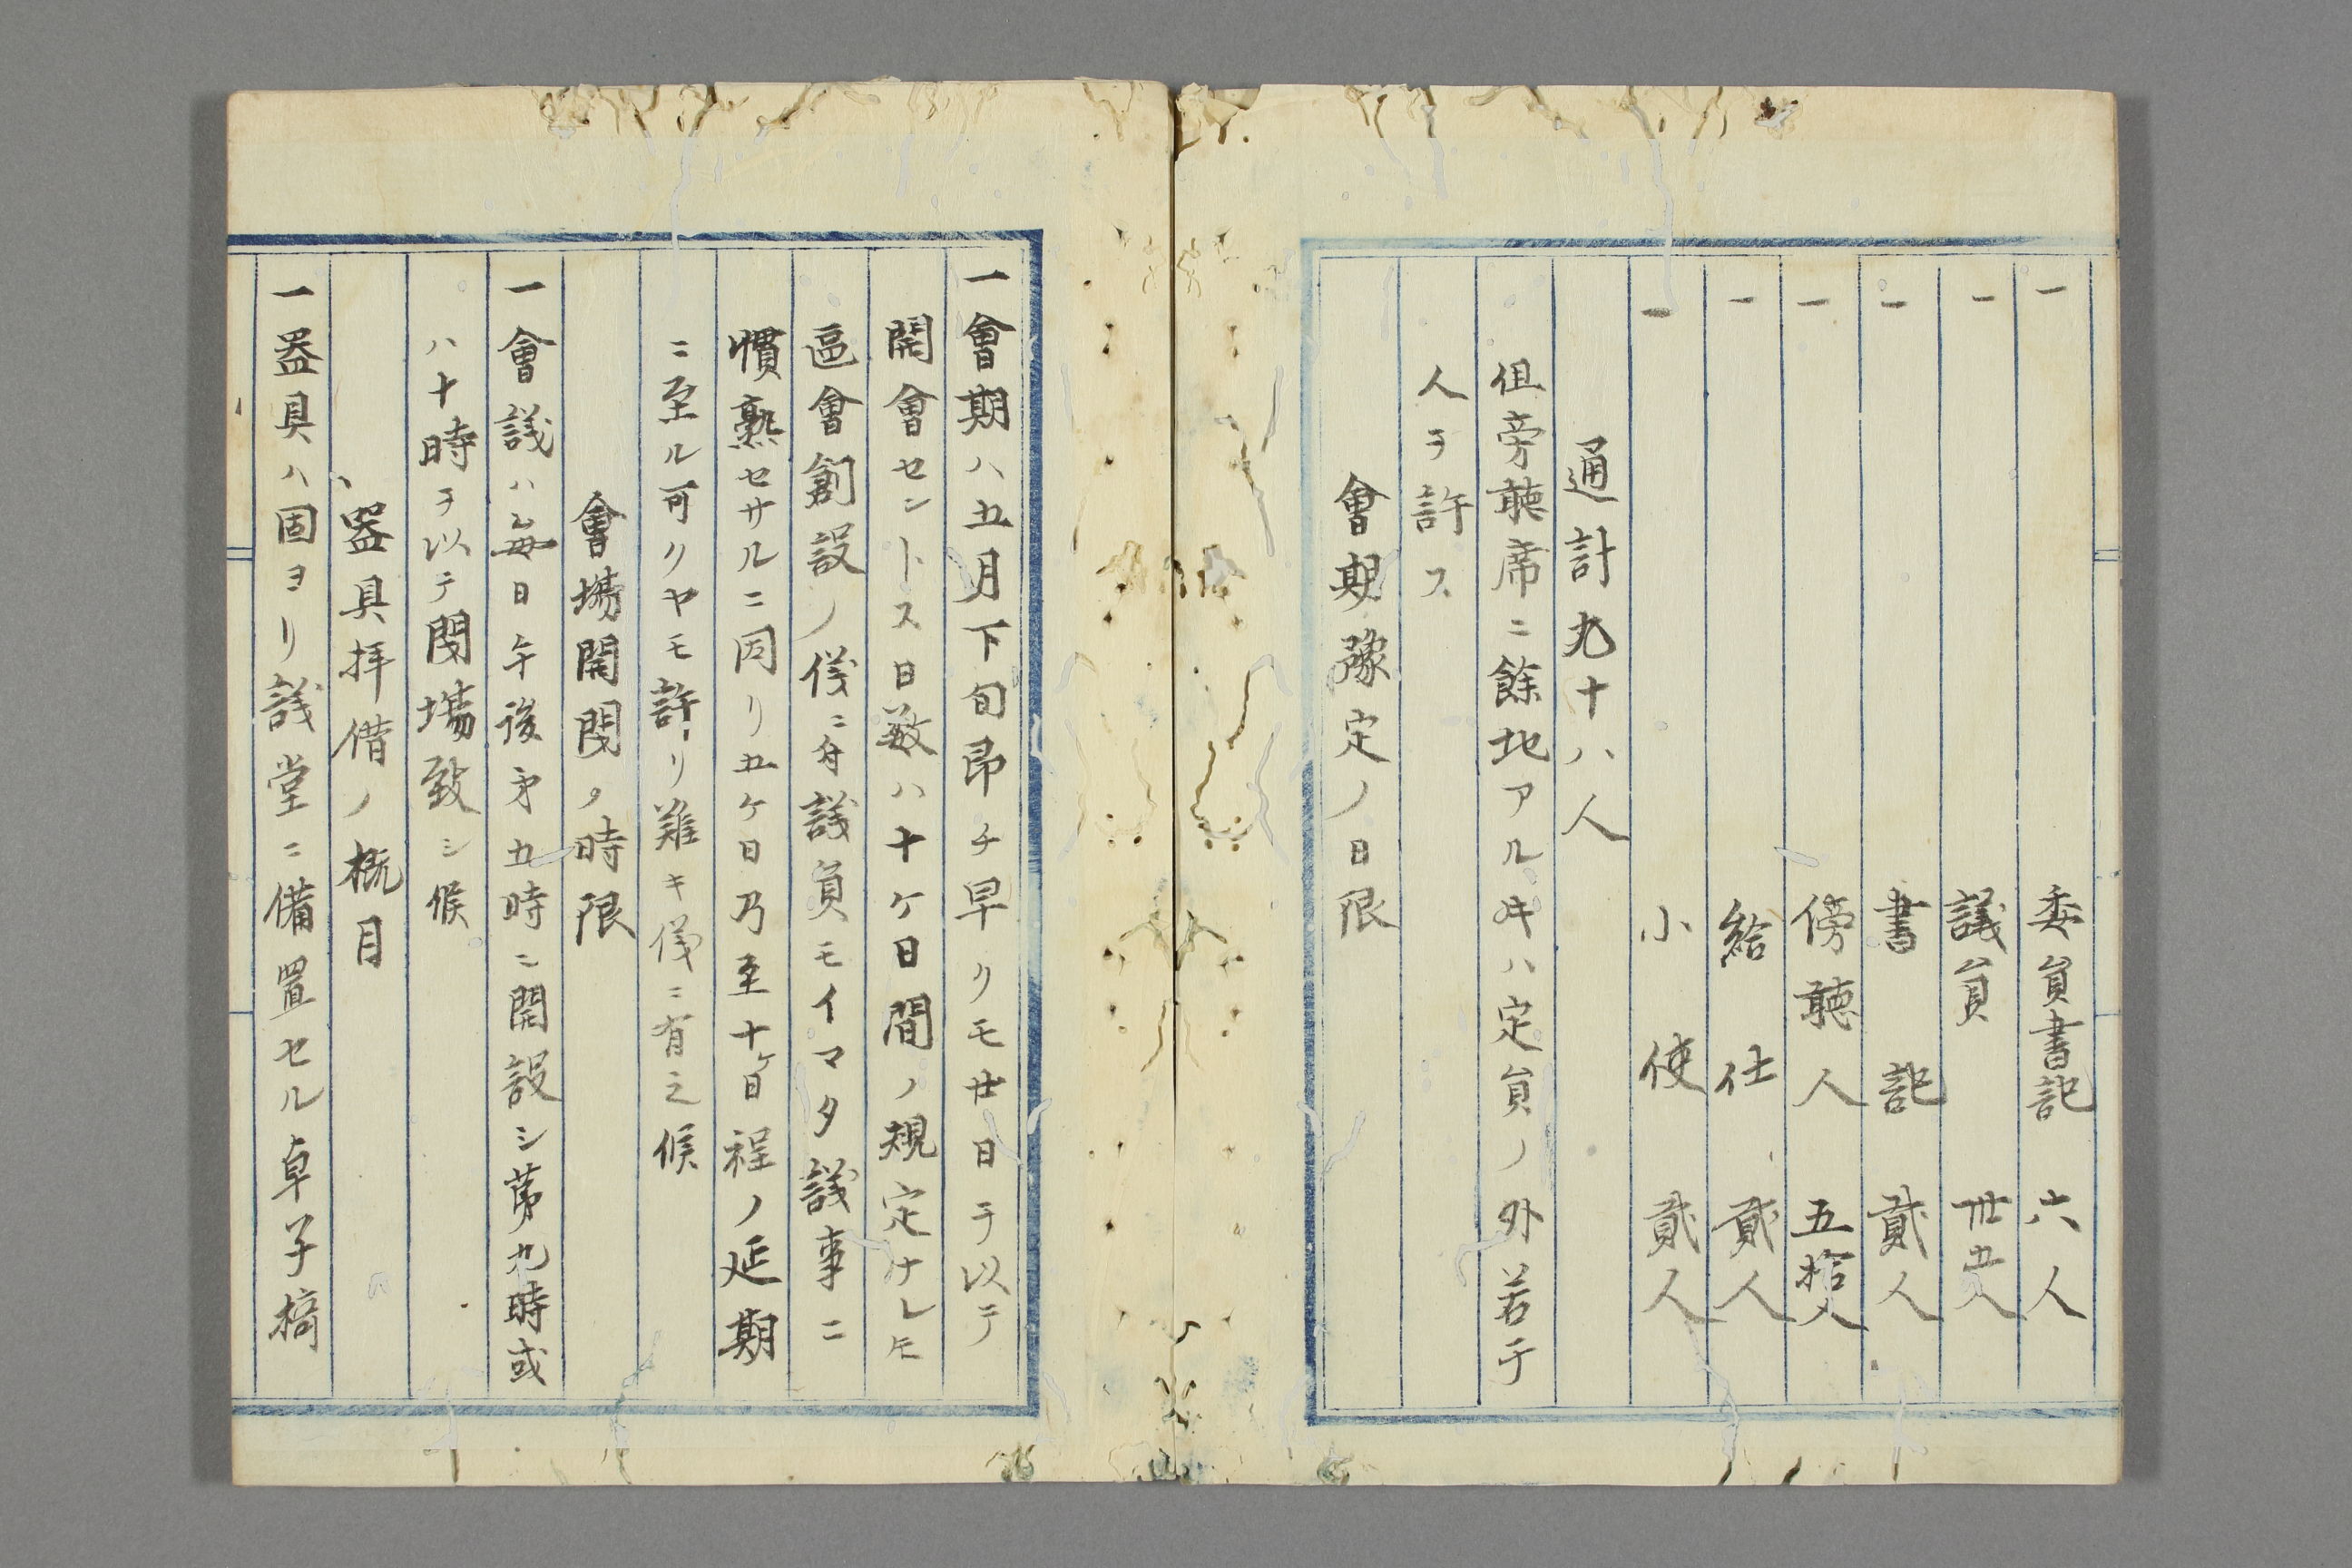 一 委員書記 六人
一 議員 卅五人
一 書記 貳人
一 傍聴人 五拾人
一 給仕 貳人
一 小使 貳人
通計九十八人
但旁聴席ニ餘地アルトキハ定員ノ外若干
人ヲ許ス
會期豫定ノ日限
一會期ハ五月下旬即チ早クモ廿日ヲ以テ
開會セントス日数ハ十ケ日間ノ規定ナレトモ
區會創設ノ儀ニ付議員モイマタ議事ニ
慣熟セサルニ因リ五ケ日乃至十ケ日程ノ延期
ニ至ル可クヤモ許リ難キ儀ニ有之候
會場開閉ノ時限
一會議ハ毎日午後第五時ニ開設シ第九時或
ハ十時ヲ以テ閉場致シ候
器具拝借ノ概目
一器具ハ固ヨリ議堂ニ備置セル卓子椅